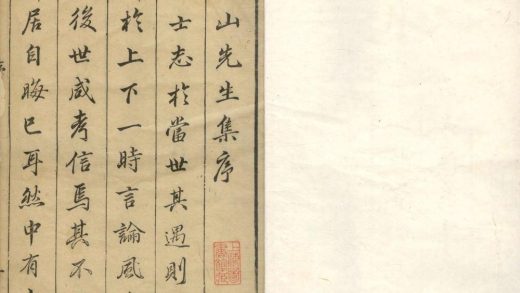 山先生集序
士志於當世其遇則
於上下一時言論風
後世咸考信焉其不
居自晦已耳然中有